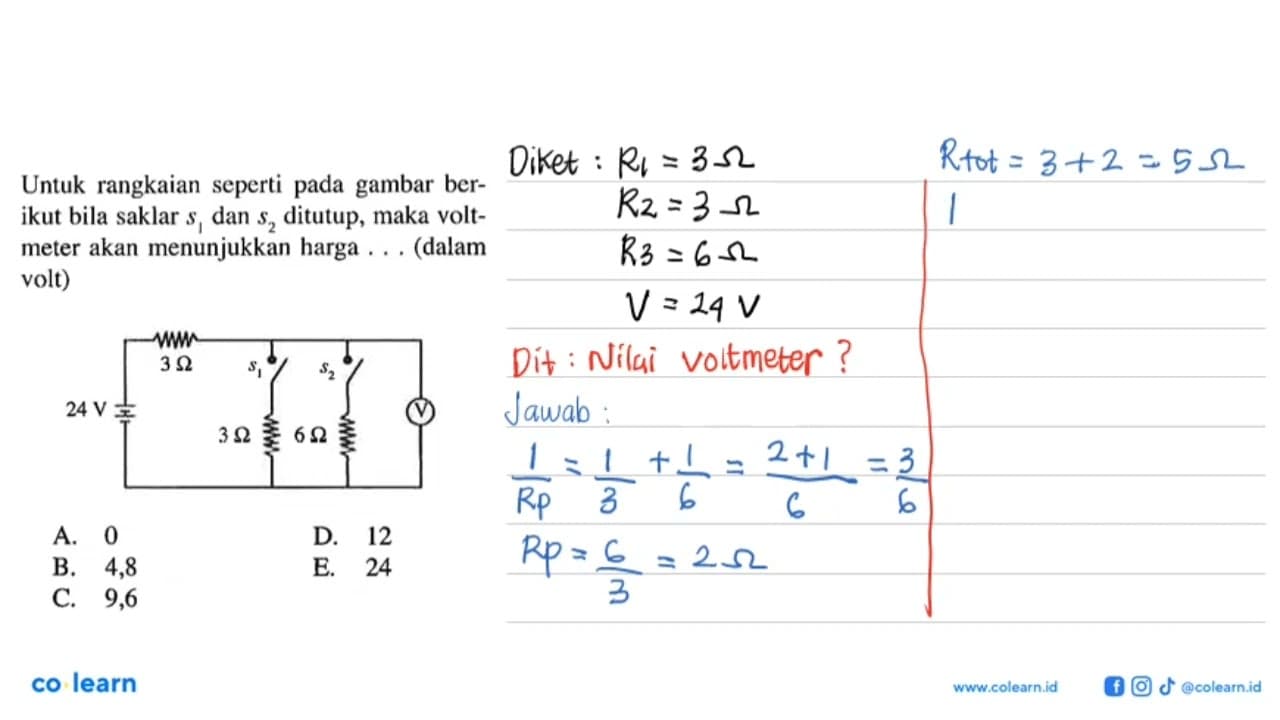 Untuk rangkaian seperti pada gambar ber-
ikut bila saklar s₁ dan s₂ ditutup, maka volt-
meter akan menunjukkan harga . . . (dalam
volt)
3 Ω
s₁
s₂
24 V
V
3 Ω
6 Ω
A. 0
B. 4,8
C. 9,6
D. 12
E. 24
Diket : R1 = 3 Ω
R2 = 3 Ω
R3 = 6 Ω
V = 24 V
Dit : Nilai voltmeter ?
Jawab :
1/Rp = 1/3 + 1/6 = 2+1/6 = 3/6
Rp = 6/3 = 2 Ω
Rtot = 3 + 2 = 5 Ω
I
co learn
www.colearn.id
@colearn.id